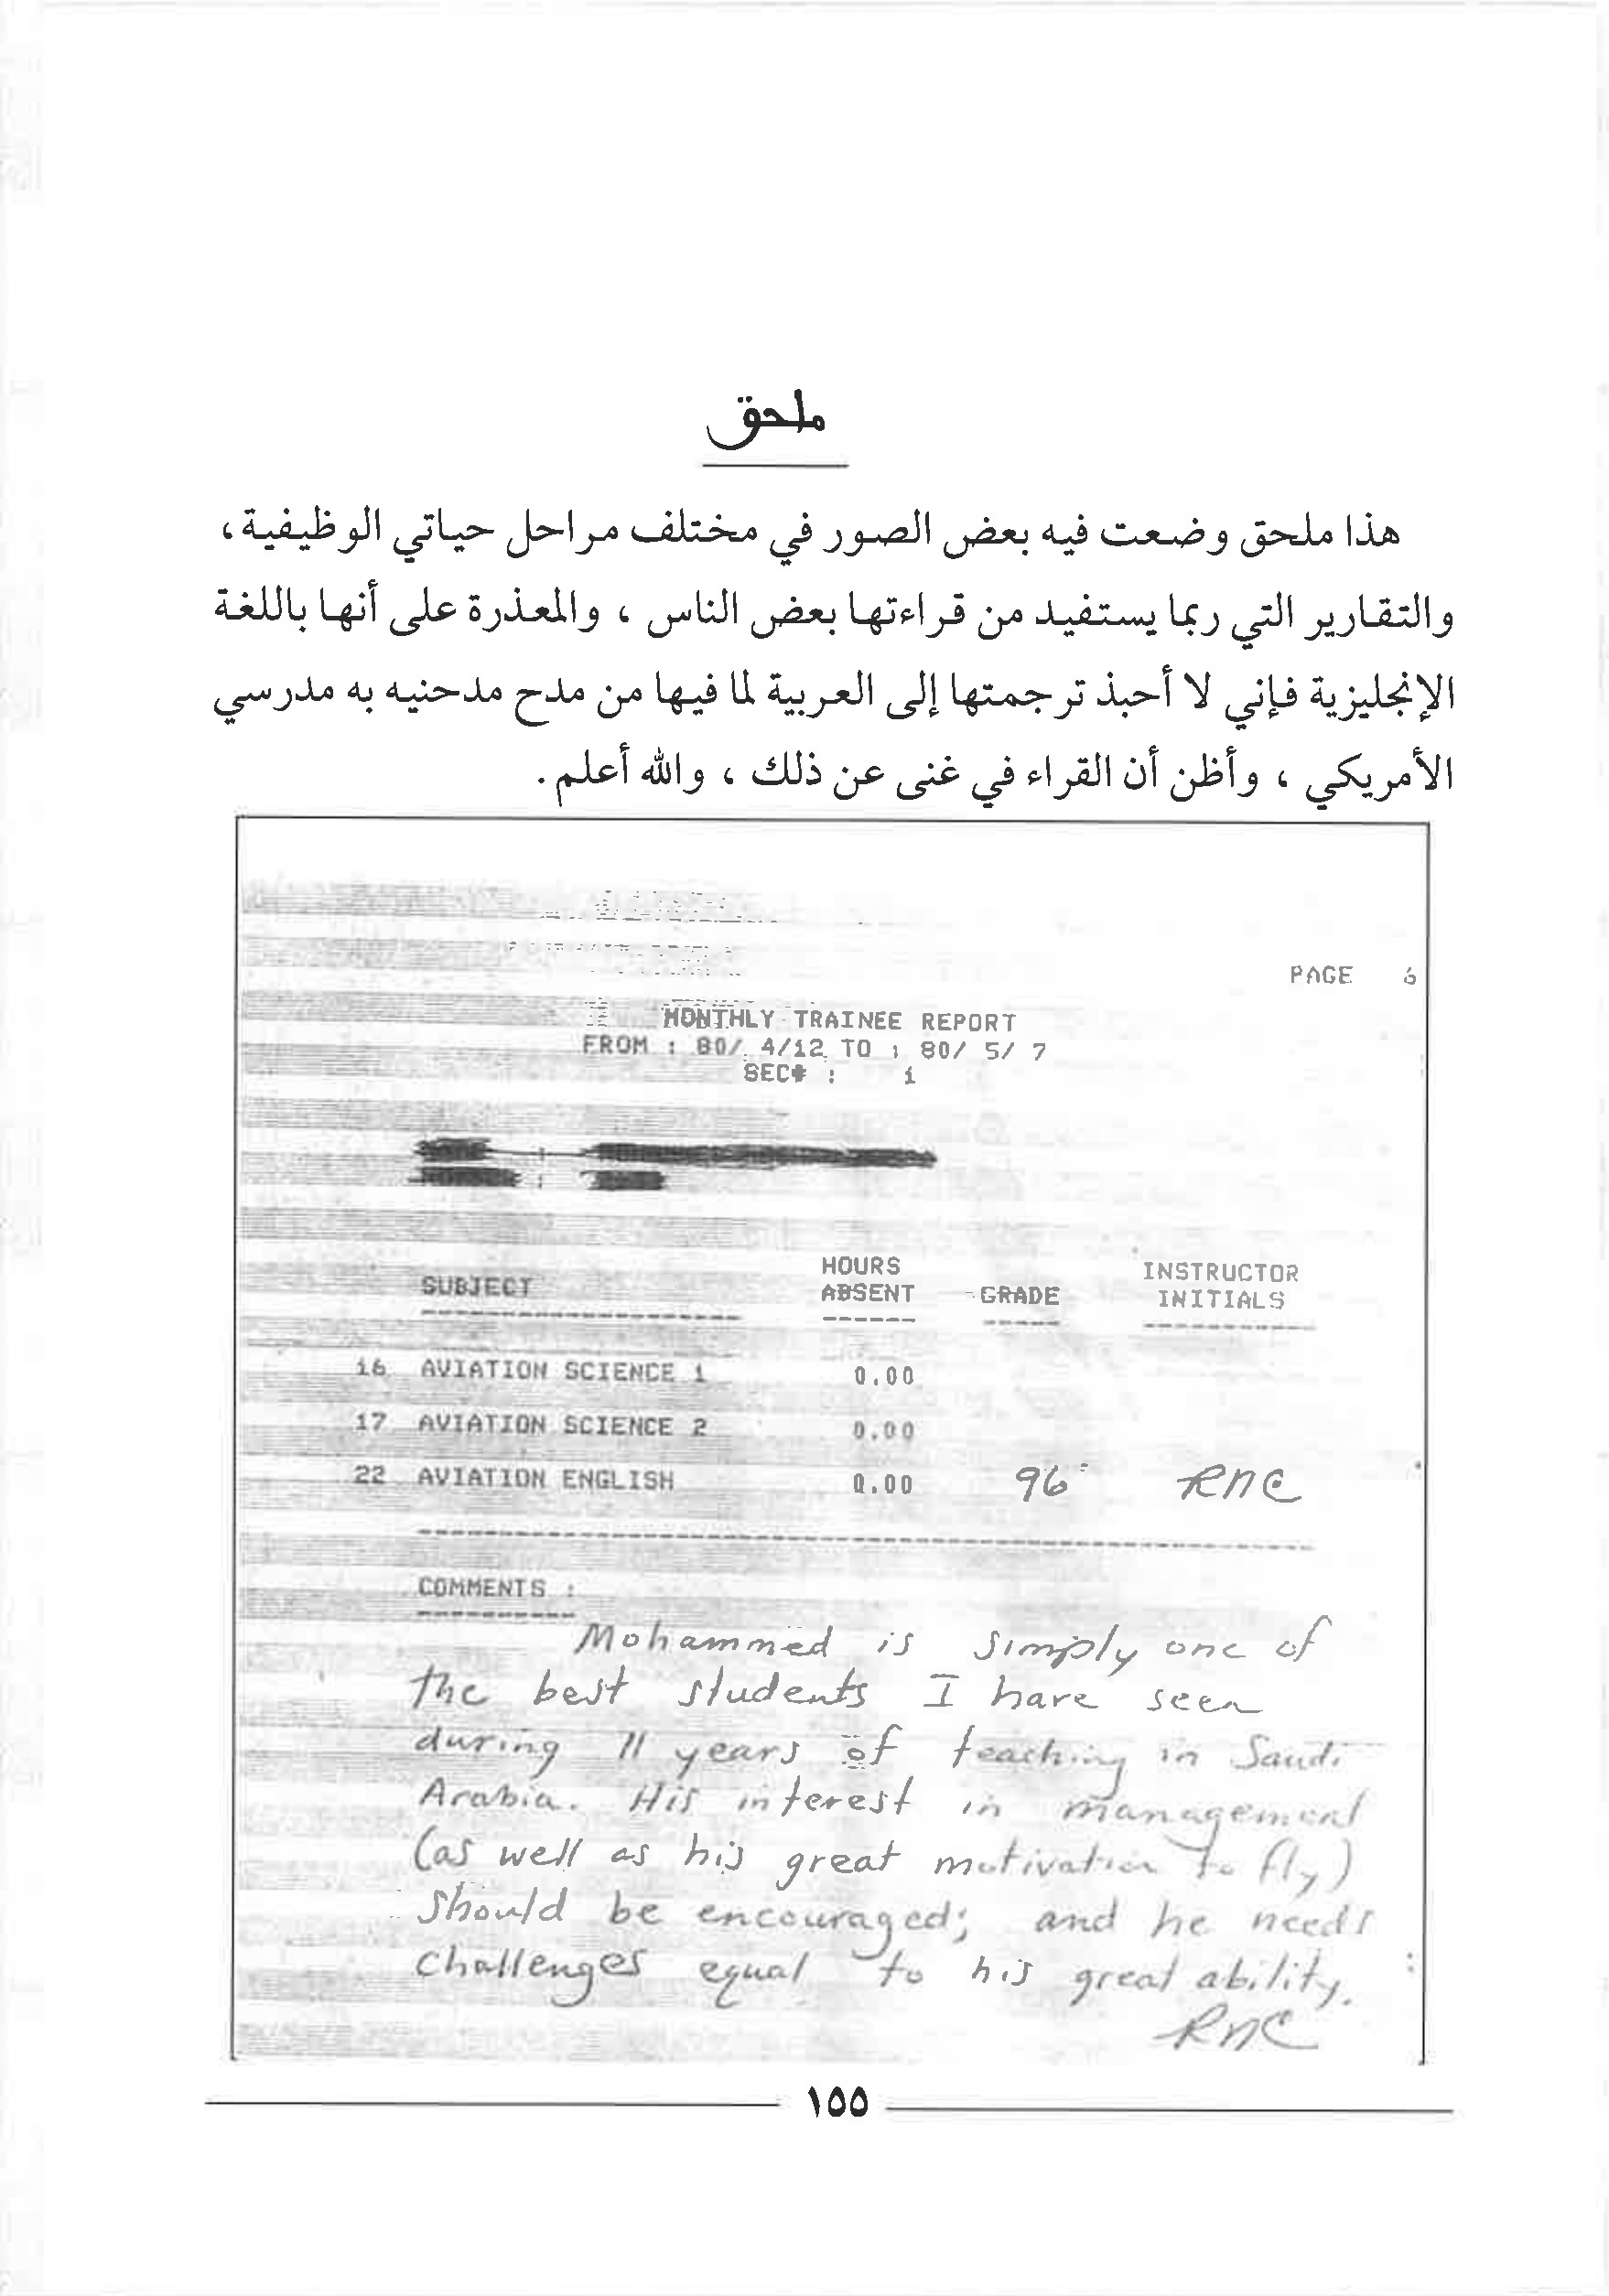 ملحق
هذا ملحق وضعت فيه بعض الصور في مختلف مراحل حياتي الوظيفية،
والتقارير التي ربما يستفيد من قراءتها بعض الناس ، والمعذرة على أنها باللغة
الإنجليزية فإني لا أحبذ ترجمتها إلى العربية لما فيها من مدح مدحنيه به مدرسي
الأمريكي ، وأظن أن القراء في غنى عن ذلك ، والله أعلم .
PAGE 6
MONTHLY TRAINEE REPORT
FROM : 80/ 4/12 TO : 80/ 5/ 7
SEC# : 1
SUBJECT HOURS ABSENT GRADE INSTRUCTOR INITIALS
16 AVIATION SCIENCE 1 0.00
17 AVIATION SCIENCE 2 0.00
22 AVIATION ENGLISH 0.00 96 RNC
COMMENTS :
Mohammed is simply one of
the best students I have seen
during 11 years of teaching in Saudi
Arabia. His interest in management
(as well as his great motivation to fly)
should be encouraged; and he needs
challenges equal to his great ability.
RNC
١٥٥